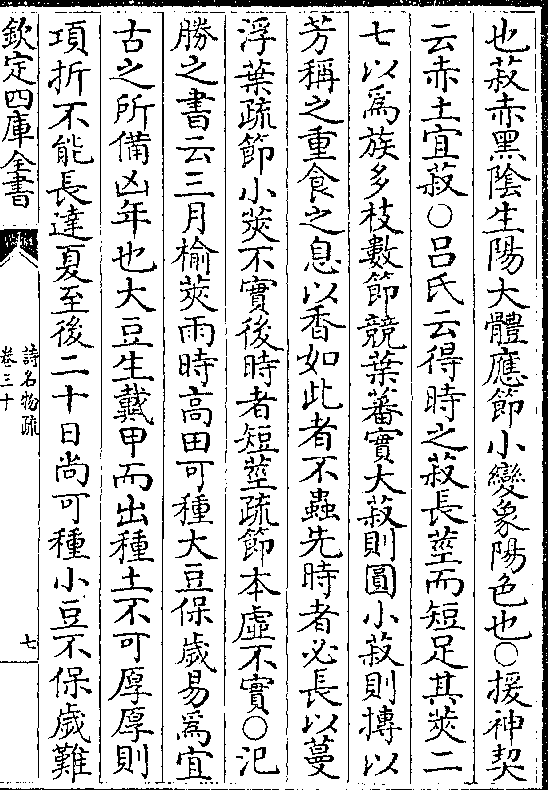 也菽赤黑陰生陽大體應節小變象陽色也○援神契
云赤土宜菽○吕氏云得時之菽長莖而短足其莢二
七以爲族多枝數節競葉蕃實大菽則圓小菽則摶以
芳稱之重食之息以香如此者不蟲先時者必長以蔓
浮葉疏節小莢不實後時者短莖疏節本虛不實○氾
勝之書云三月榆莢雨時高田可種大豆保歲易爲宜
古之所備凶年也大豆生戴甲而出種土不可厚厚則
項折不能長達夏至後二十日尚可種小豆不保歲難
欽定四庫全書
詩名物疏
卷三十
七